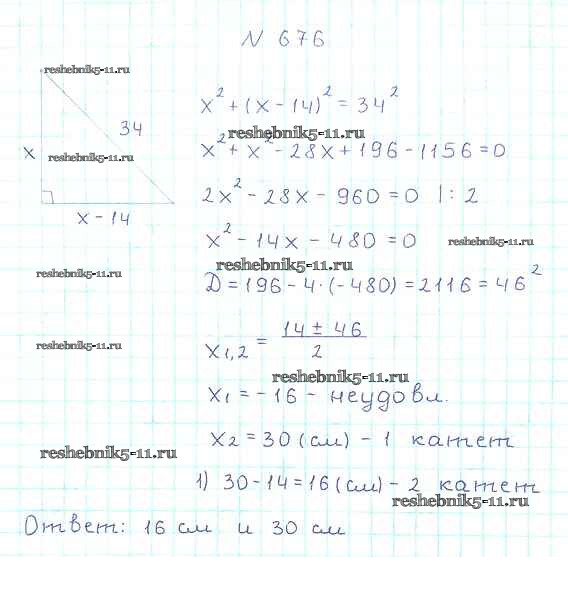 N 676
reshebnik5-11.ru
x² + (x - 14)² = 34²
34
reshebnik5-11.ru
x² + x² - 28x + 196 - 1156 = 0
x
reshebnik5-11.ru
2x² - 28x - 960 = 0 |: 2
x - 14
x² - 14x - 480 = 0
reshebnik5-11.ru
reshebnik5-11.ru
reshebnik5-11.ru
D = 196 - 4·(-480) = 2116 = 46²
reshebnik5-11.ru
x1,2 = (14 ± 46)/2
reshebnik5-11.ru
x1 = -16 - неудовл.
x2 = 30 (см) - 1 катет
reshebnik5-11.ru
1) 30 - 14 = 16 (см) - 2 катет
reshebnik5-11.ru
Ответ: 16 см и 30 см